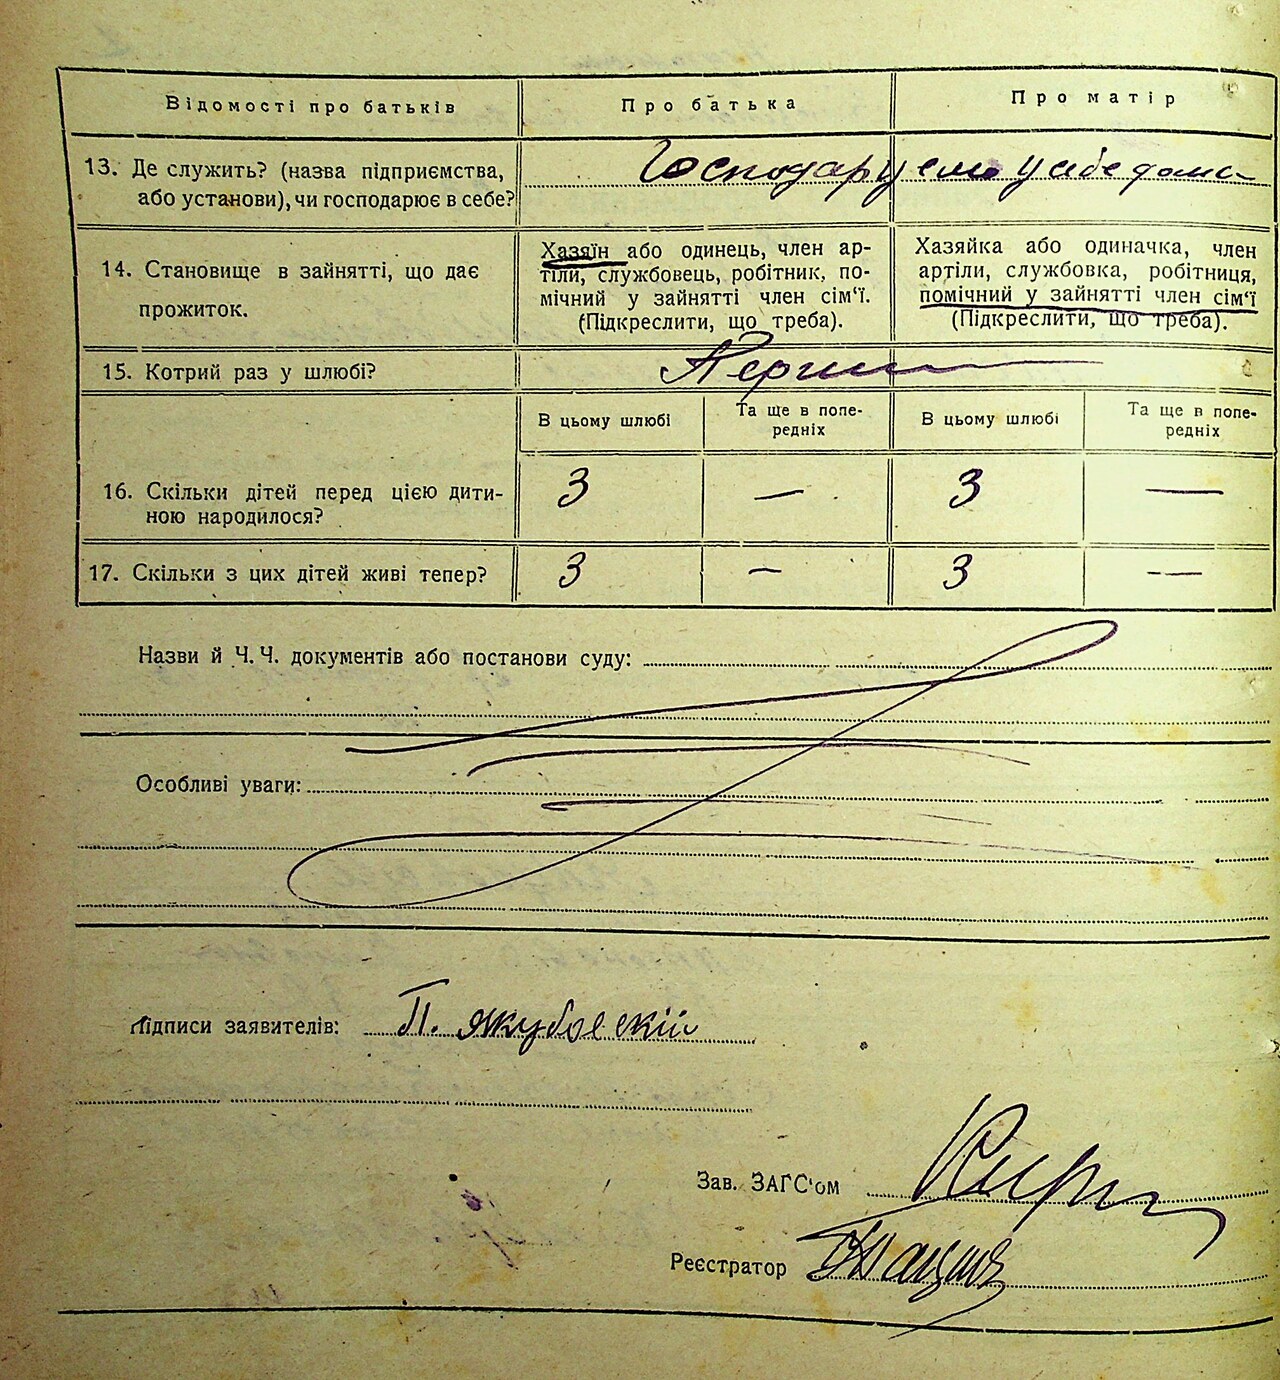 Відомості про батьків
Про батька
Про матір
13. Де служить? (назва підприємства,
або установи), чи господарює в себе?
Господаруємо у себе дома
14. Становище в зайнятті, що дає
прожиток.
Хазяїн або одинець, член ар-
тіли, службовець, робітник, по-
мічний у зайнятті член сім'ї.
(Підкреслити, що треба).
Хазяйка або одиначка, член
артіли, службовка, робітниця,
помічний у зайнятті член сім'ї
(Підкреслити, що треба).
15. Котрий раз у шлюбі?
В цьому шлюбі
Та ще в попе-
редніх
В цьому шлюбі
Та ще в попе-
редніх
16. Скільки дітей перед цією дити-
ною народилося?
3 — 3 —
17. Скільки з цих дітей живі тепер?
3 — 3 —
Назви й Ч. Ч. документів або постанови суду:
Особливі уваги:
Підписи заявителів: П. Якубовскій
Зав. ЗАГС'ом
Реєстратор